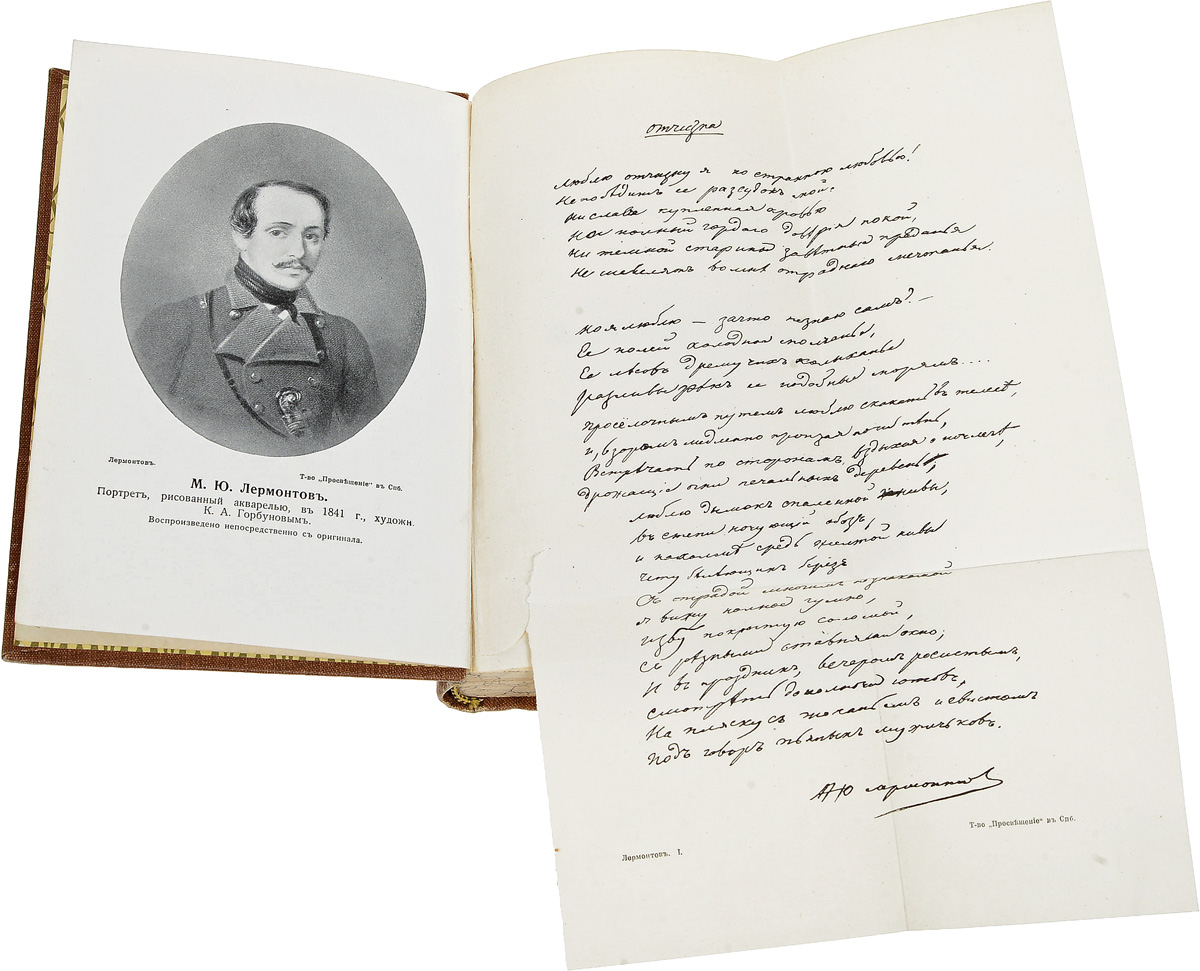 Лермонтовъ.
Т-во „Просвѣщеніе“ въ Спб.
М. Ю. Лермонтовъ.
Портретъ, рисованный акварелью, въ 1841 г., художн.
К. А. Горбуновымъ.
Воспроизведено непосредственно съ оригинала.
Отчизна
Люблю отчизну я но странною любовью!
Не побѣдитъ ее разсудокъ мой.
Ни слава купленная кровью
Ни полный гордаго довѣрія покой,
Ни темной старины завѣтныя преданья
Не шевелятъ во мнѣ отраднаго мечтанья.
Но я люблю — за что не знаю самъ? —
Ее полей холодное молчанье,
Ее лѣсовъ дремучихъ колыханье
Разливы рѣкъ ее подобные морямъ....
Просёлочнымъ путемъ люблю скакать въ телегѣ,
И, взоромъ медленно пронзая ночи тѣнь,
Встрѣчать по сторонамъ, вздыхая о ночлегѣ
Дрожащіе огни печальныхъ деревень,
Люблю дымокъ спаленной жнивы,
Въ степи ночующій обозъ,
И на холмѣ средь желтой нивы
Чету бѣлѣющихъ березъ
Съ отрадой многимъ незнакомой
Я вижу полное гумно,
Избу покрытую соломой,
Съ рѣзными ставнями окно;
И въ праздникъ, вечеромъ росистымъ,
Смотрѣть до полночи готовъ,
На пляску съ топаньемъ и свистомъ
Подъ говоръ пьяныхъ мужичковъ.
М Ю Лермонтов
Т-во „Просвѣщеніе“ въ Спб.
Лермонтовъ. I.